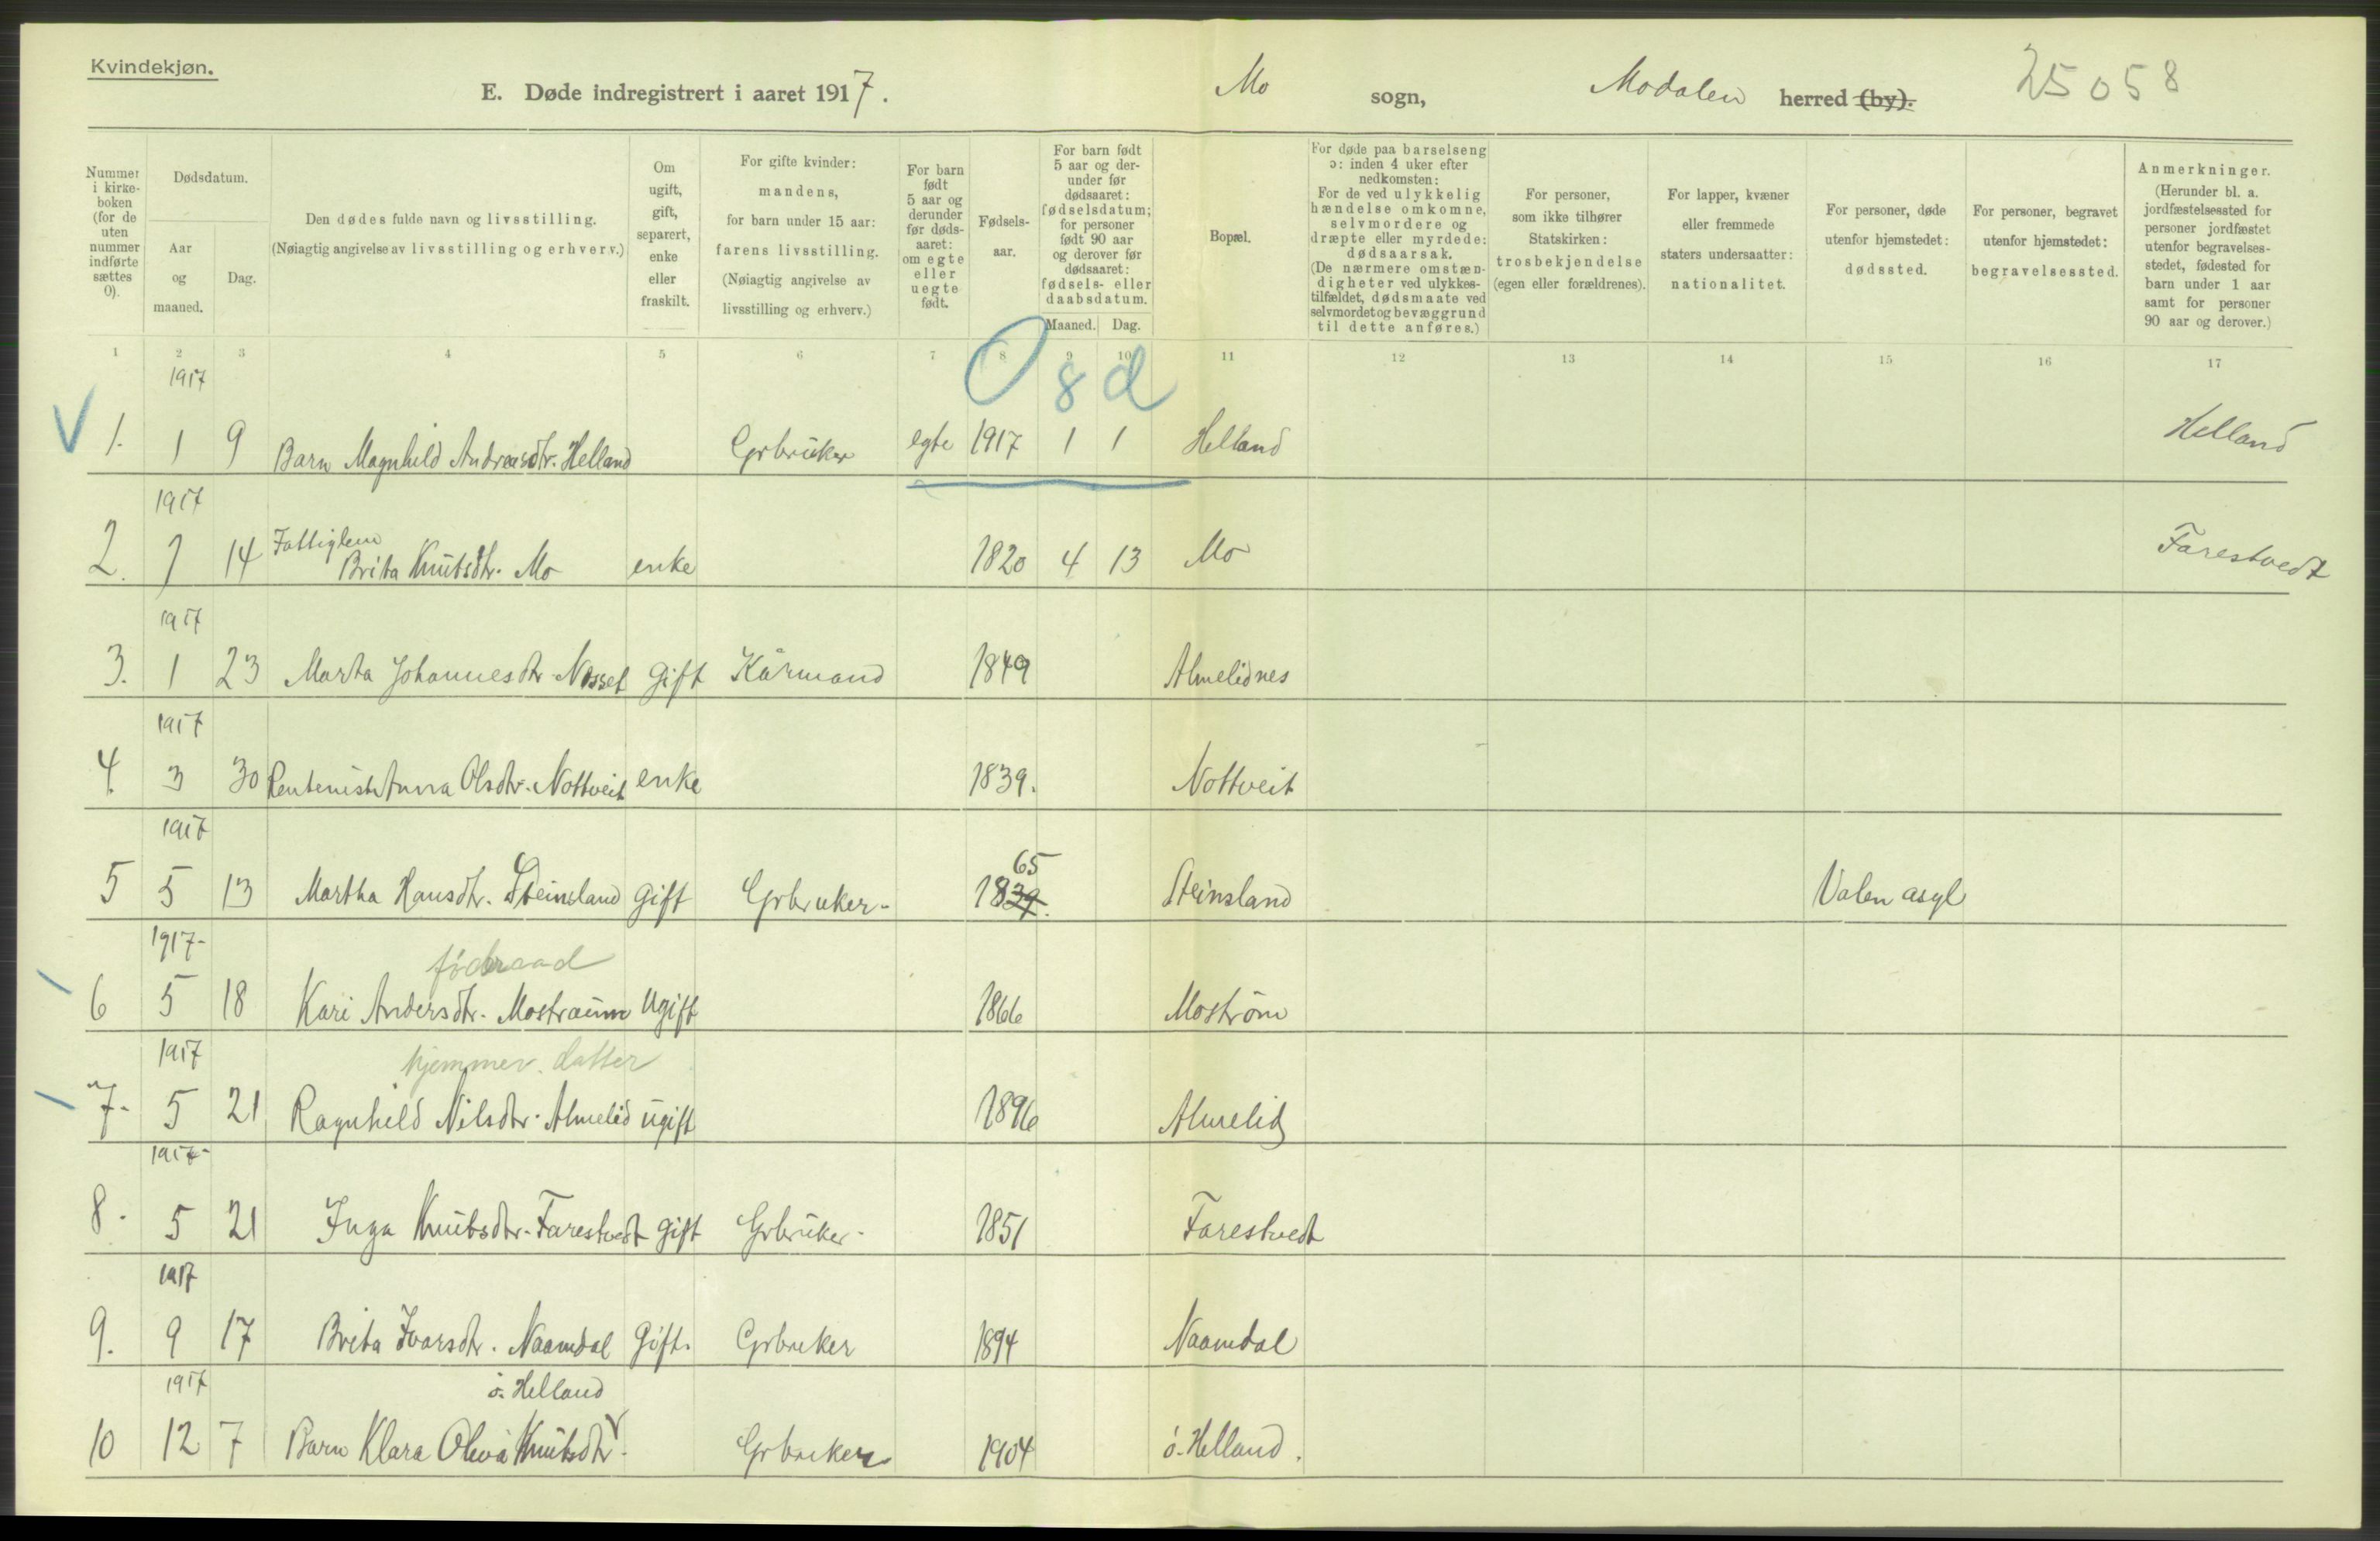 Kvindekjøn.
E. Døde indregistrert i aaret 1917.
Mo sogn, Modalen herred (by).
25058
Nummer i kirkeboken (for de uten nummer indførte sættes 0).
Dødsdatum.
Aar og maaned.
Dag.
Den dødes fulde navn og livsstilling.
(Nøiagtig angivelse av livsstilling og erhverv.)
Om ugift, gift, separert, enke eller fraskilt.
For gifte kvinder: mandens, for barn under 15 aar: farens livsstilling. (Nøiagtig angivelse av livsstilling og erhverv.)
For barn født 5 aar og derunder før dødsaaret: om egte eller uegte født.
Fødselsaar.
For barn født 5 aar og derunder før dødsaaret: fødselsdatum; for personer født 90 aar og derover før dødsaaret: fødsels- eller daabsdatum.
Maaned. Dag.
Bopæl.
For døde paa barselseng ɔ: inden 4 uker efter nedkomsten: For de ved ulykkelig hændelse omkomne, selvmordere og dræpte eller myrdede: dødsaarsak. (De nærmere omstændigheter ved ulykkestilfældet, dødsmaate ved selvmordet og bevæggrund til dette anføres.)
For personer, som ikke tilhører Statskirken: trosbekjendelse (egen eller forældrenes).
For lapper, kvæner eller fremmede staters undersaatter: nationalitet.
For personer, døde utenfor hjemstedet: dødssted.
For personer, begravet utenfor hjemstedet: begravelsessted.
Anmerkninger. (Herunder bl. a. jordfæstelsessted for personer jordfæstet utenfor begravelsesstedet, fødested for barn under 1 aar samt for personer 90 aar og derover.)
1 2 3 4 5 6 7 8 9 10 11 12 13 14 15 16 17
0 8 d
1917
1. 1 9 Barn Magnhild Andreasdtr. Helland Grbruker egte 1917 1 1 Helland Helland
1917
Fattiglem
2. 7 14 Brita Knutsdtr. Mo enke 1820 4 13 Mo Farestvedt
1917
3. 1 23 Marta Johannesdtr Nosset Gift Kårmand 1849 Almelidnes
1917
4. 3 30 Rentenist Anna Olsdtr. Nottveit enke 1839. Nottveit
1917
65
5 5 13 Martha Hansdtr. Steinsland Gift Grbruker- 1839. Steinsland Valen asyl
1917-
føderaad
6 5 18 Kari Andersdtr. Mostraum Ugift 1866 Moström
1917
hjemmev. datter
7- 5 21 Ragnhild Nilsdtr. Almelid ugift 1896 Almelid
1917-
8. 5 21 Inga Knutsdtr. Farestvedt gift Grbruker- 1851 Farestvedt
1917
9. 9 17 Brita Ivarsdtr. Naamdal Gift. Grbruker 1894 Naamdal
1917
ö. Helland
10 12 7 Barn Klara Oliva Knutsdtr. Grbruker 1904 ö. Helland.